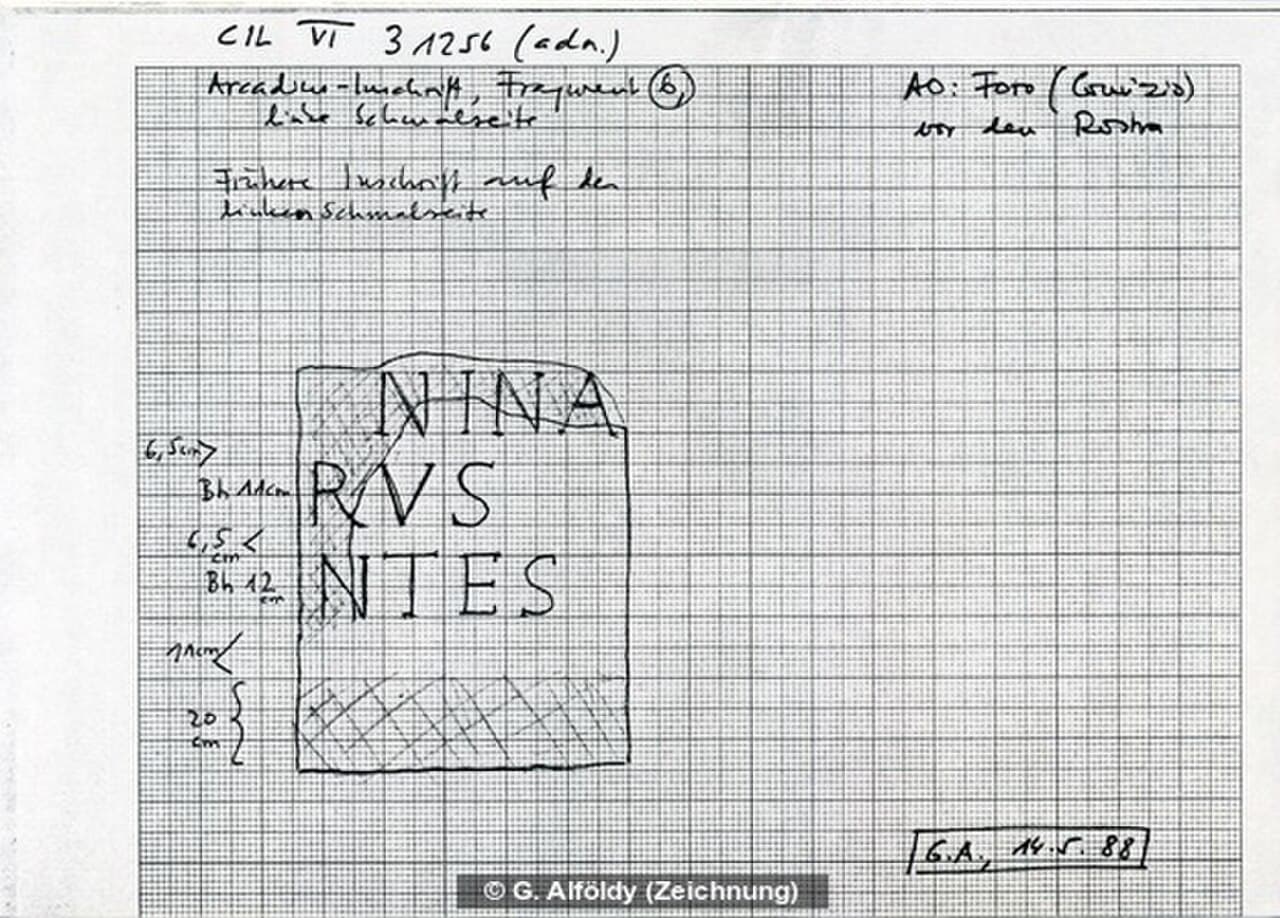 CIL VI 31256 (adn.)
Arcadius-Inschrift, Fragment b,
linke Schmalseite
AO: Foro (Comizio)
vor den Rostra
Frühere Inschrift auf der
linken Schmalseite
NINA
6,5cm
Bh 11cm RVS
6,5 cm
Bh 12 cm NTES
11cm
20 cm
G.A., 14.5.88
© G. Alföldy (Zeichnung)